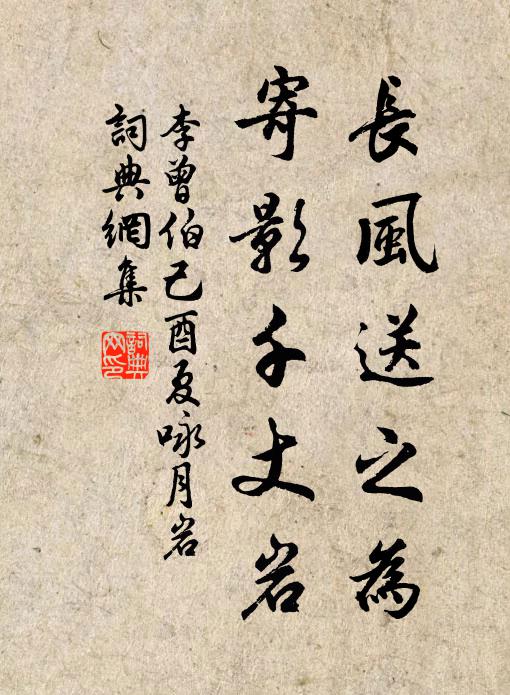 長風送之為
寄影千丈岩
李曾伯己酉夏咏月岩
詞典網集
詞典
网印